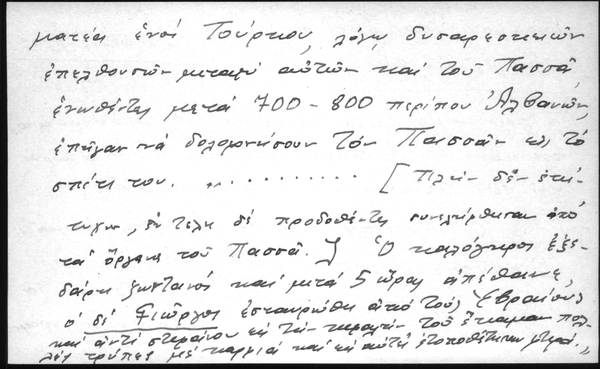 ματέαι ἑνοί Τούρκου, λόγῳ δυσαρεστειῶν
ἐπελθουσῶν μεταξύ αὐτῶν καί τοῦ Πασσᾶ
ἑνωθέντες μετά 700 - 800 περίπου Ἀλβανῶν,
ἐπῆγαν νά δολοφονήσουν τόν Πασσᾶν εἰς τό
σπίτι του. ............ [Πλήν δέν ἐπέ-
τυχον, ἐν τέλει δέ προδοθέντες συνελήφθησαν ἀπό
τά ὄργανα τοῦ Πασσᾶ.] Ὁ καλόγηρος ἐξε-
δάρη ζωντανός καί μετά 5 ὥρας ἀπέθανε,
ὁ δέ Γιῶργος ἐσταυρώθη ἀπό τούς Ἑβραίους
καί ἀντί στεφάνου εἰς τήν κεφαλήν τοῦ ἔκαμαν πολ-
λές τρύπες μέ καρφιά καί εἰς αὐτές ἐτοποθέτησαν